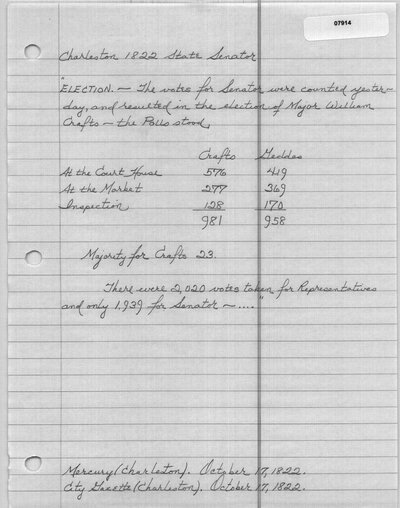 07914
Charleston 1822 State Senator
"ELECTION. — The votes for Senator were counted yester-
day, and resulted in the election of Major William
Crafts — the Polls stood,
Crafts Geddes
At the Court House 576 419
At the Market 277 369
Inspection 128 170
981 958
Majority for Crafts 23.
There were 2,020 votes taken for Representatives
and only 1,939 for Senator — ...."
Mercury (Charleston). October 17, 1822.
City Gazette (Charleston). October 17, 1822.